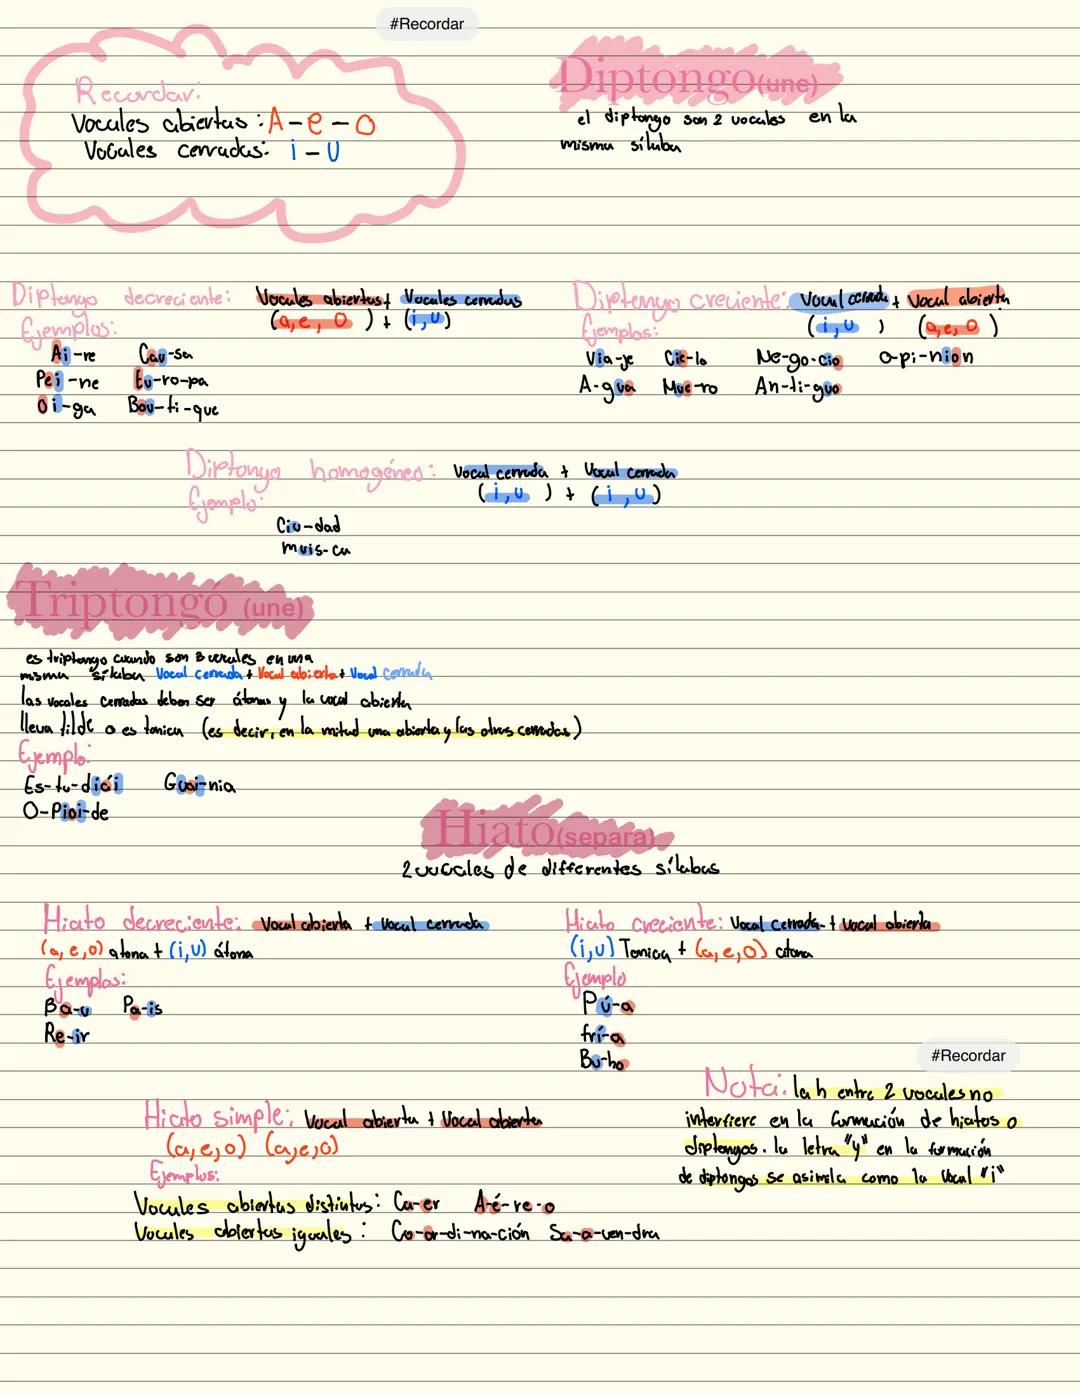 #Recordar
Recordar:
Vocales abiertas: A-e-O
Vocales cerradas: i-U
Diptongo (une)
el diptongo son 2 vocales en la
misma sílaba
Diptongo decreciente: Vocales abiertas + Vocales cerradas
(a, e, o) + (i, u)
Ejemplos:
Ai-re Cau-sa
Pei-ne Eu-ro-pa
Oi-ga Bou-ti-que
Diptongo creciente: Vocal cerrada + Vocal abierta
(i, u) (a, e, o)
Ejemplos:
Via-je Cie-lo Ne-go-cio o-pi-nion
A-gua Mue-ro An-ti-guo
Diptongo homogéneo: Vocal cerrada + Vocal cerrada
(i, u) + (i, u)
Ejemplo:
Ciu-dad
muis-ca
Triptongó (une)
es triptongo cuando son 3 vocales en una
misma sílaba Vocal cerrada + Vocal abierta + Vocal Cerrada
las vocales cerradas deben ser átonas y la vocal abierta
lleva tilde o es tonica (es decir, en la mitad una abierta y las otras cerradas)
Ejemplo:
Es-tu-diái Guai-nia
O-Pioi-de
Hiato (separa)
2 vocales de differentes sílabas
Hiato decreciente: Vocal abierta + Vocal cerrada
(a, e, o) atona + (i, u) átona
Ejemplos:
Ba-u Pa-is
Re-ir
Hiato creciente: Vocal cerrada + Vocal abierta
(i, u) Tonica + (a, e, o) atona
Ejemplo
Pú-a
frí-a
Bu-ho
#Recordar
Nota: la h entre 2 vocales no
interfiere en la formación de hiatos o
diptongos. la letra "y" en la formación
de diptongos se asimila como la Vocal "i"
Hiato simple: Vocal abierta + Vocal abierta
(a, e, o) (a, e, o)
Ejemplos:
Vocales abiertas distintas: Ca-er A-é-re-o
Vocales abiertas iguales: Co-or-di-na-ción Sa-a-ven-dra